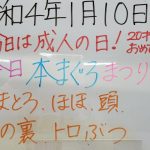 和4年1月10日
今日は成人の日!
20才
おめ
今日 本まぐろまつり
まとろ、ほほ、頭、
の裏、トロぶつ